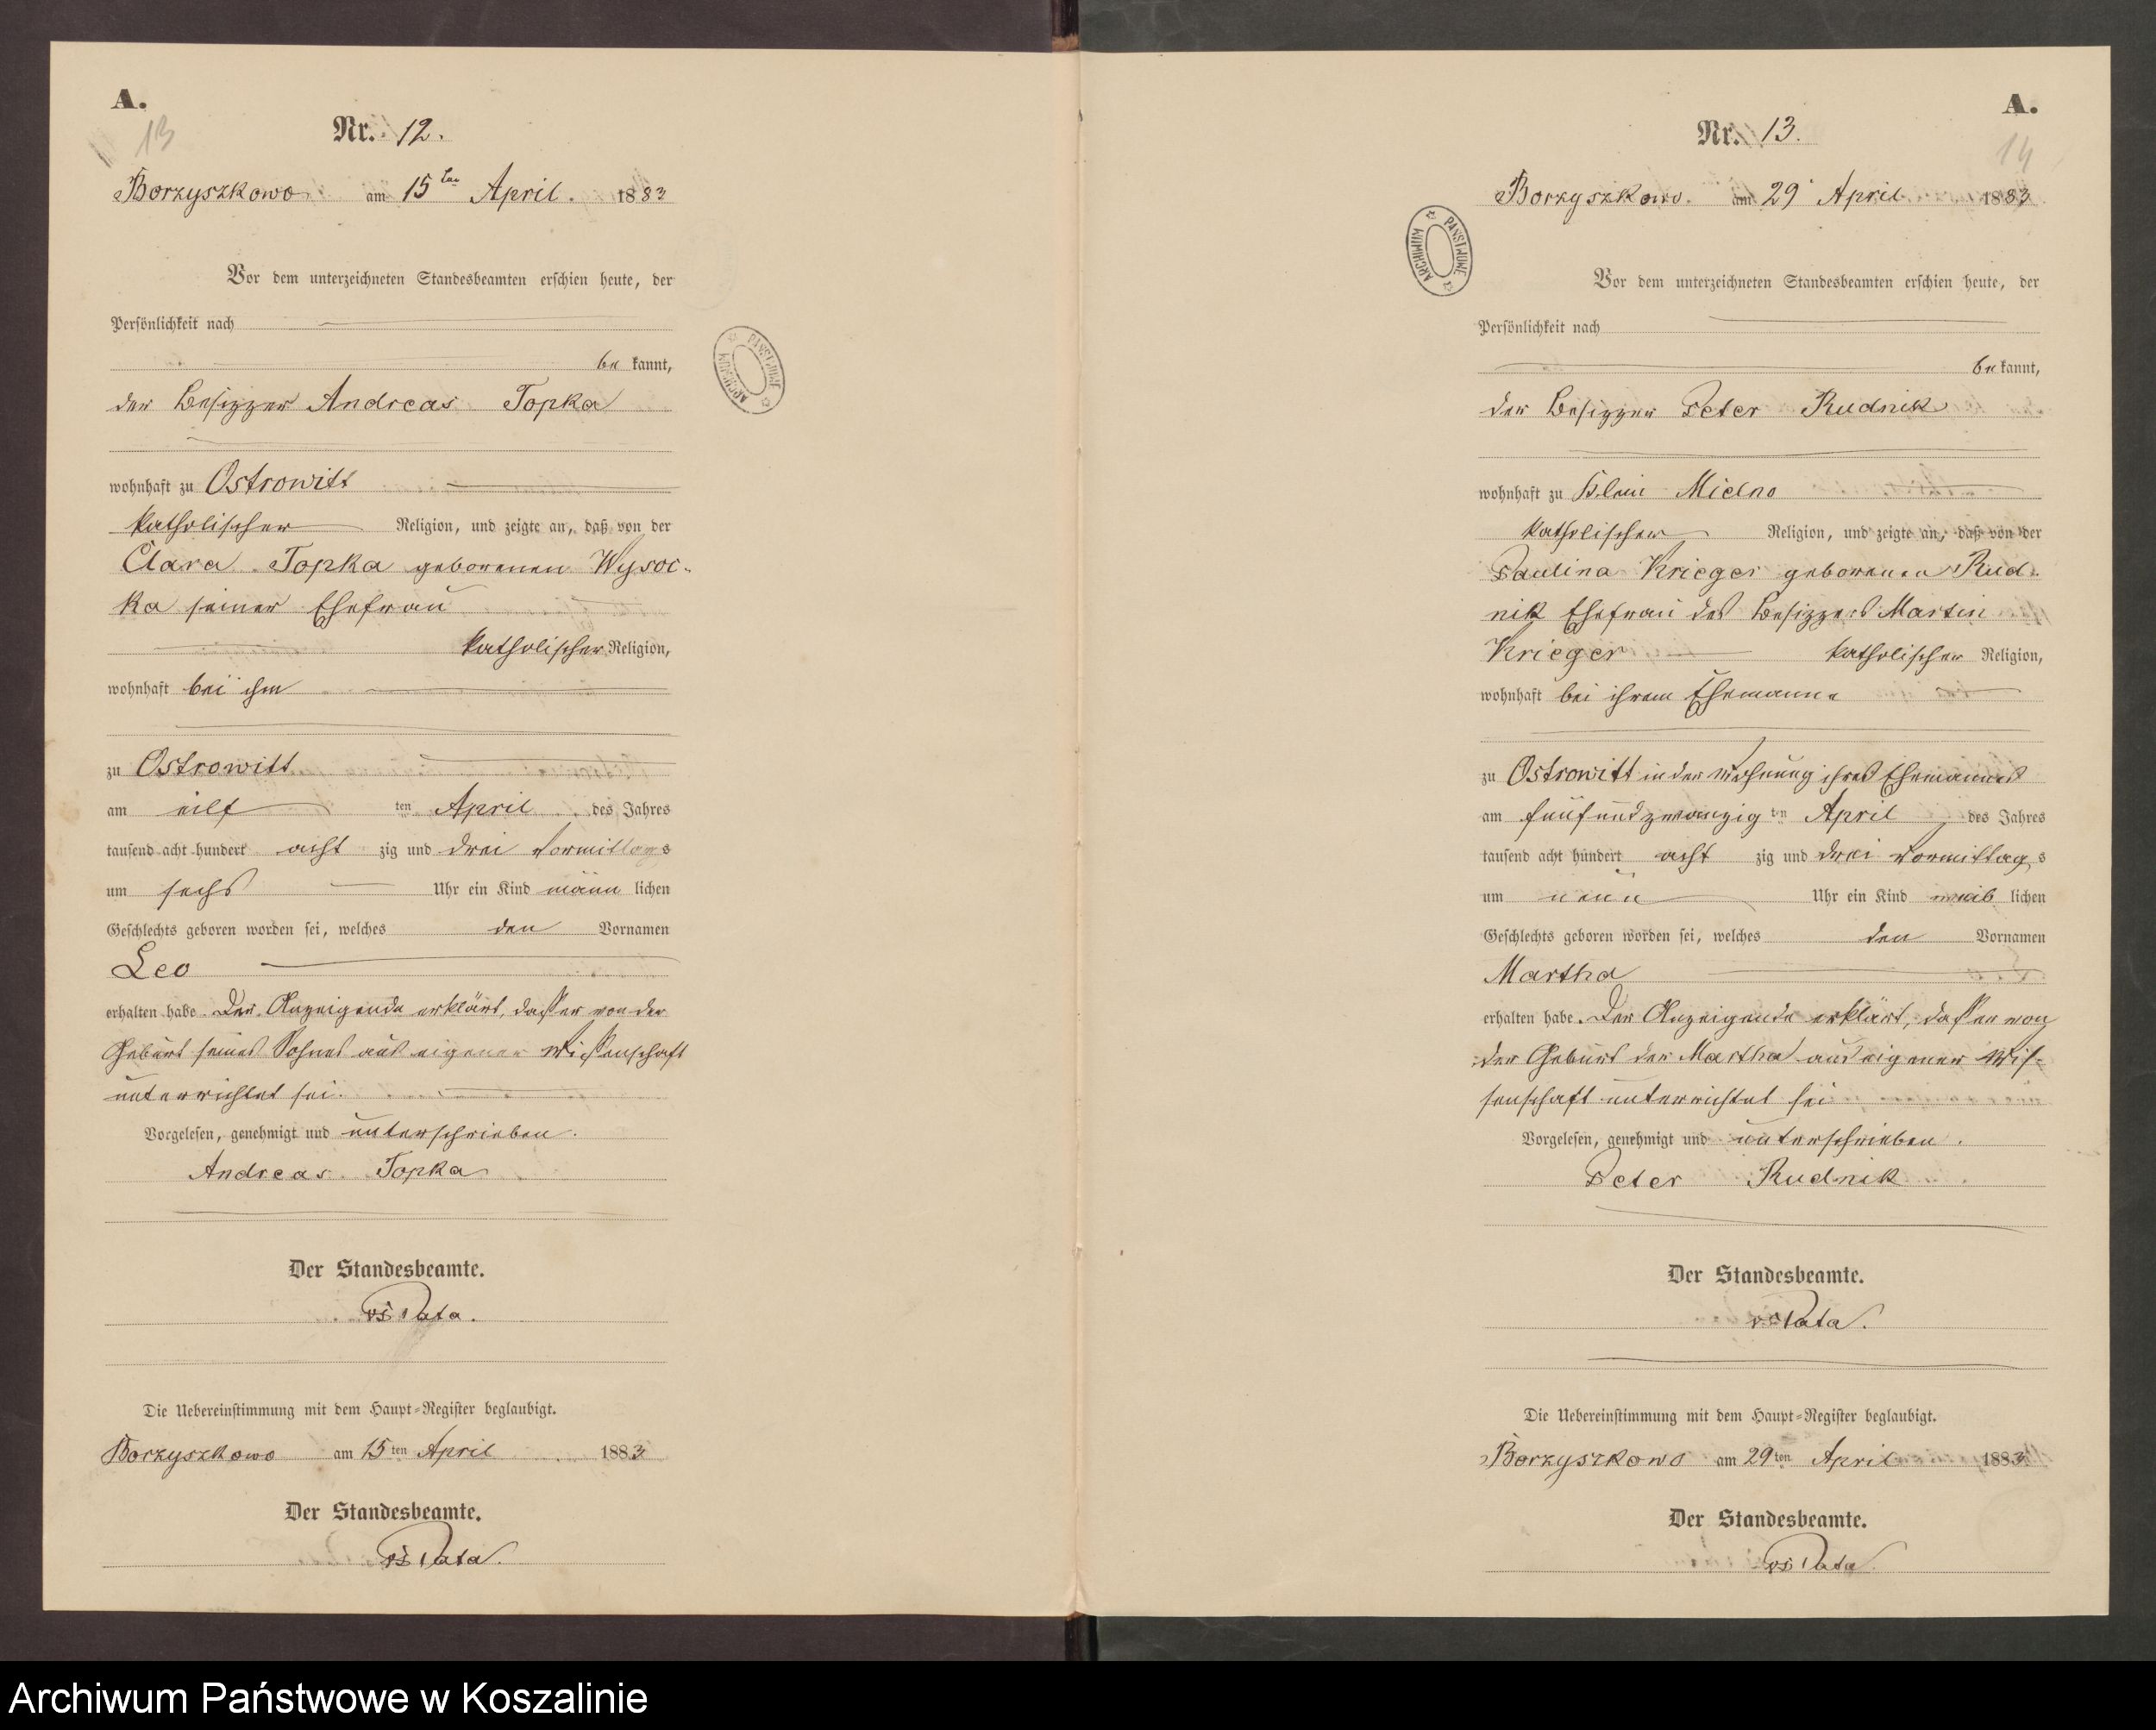 A.
13
Nr. 12.
Borzyszkowo am 15ten April. 1883
Vor dem unterzeichneten Standesbeamten erschien heute, der
Persönlichkeit nach
be kannt,
der Besizzer Andreas Topka
wohnhaft zu Ostrowitt
katholischer Religion, und zeigte an, daß von der
Clara Topka geborenen Wysoc-
ka seiner Ehefrau
katholischer Religion,
wohnhaft bei ihm
zu Ostrowitt
am eilf ten April des Jahres
tausend acht hundert acht zig und drei Vormittags
um sechs Uhr ein Kind männ lichen
Geschlechts geboren worden sei, welches den Vornamen
Leo
erhalten habe. Der Anzeigende erklärt, daß er von der
Geburt seines Sohnes aus eigener Wissenschaft
unterrichtet sei.
Vorgelesen, genehmigt und unterschrieben.
Andreas Topka
Der Standesbeamte.
Pata.
Die Uebereinstimmung mit dem Haupt-Register beglaubigt.
Borzyszkowo am 15ten April 1883
Der Standesbeamte.
Pata.
ARCHIWUM PAŃSTWOWE
A.
14
Nr. 13.
Borzyszkowo. am 29 April 1883
Vor dem unterzeichneten Standesbeamten erschien heute, der
Persönlichkeit nach
be kannt,
der Besizzer Peter Rudnik
wohnhaft zu Klein Miedno
katholischer Religion, und zeigte an, daß von der
Paulina Krieger geborenen Rud-
nik Ehefrau des Besizzers Martin
Krieger katholischer Religion,
wohnhaft bei ihrem Ehemanne
zu Ostrowitt in der Wohnung ihres Ehemannes
am fünfundzwanzig ten April des Jahres
tausend acht hundert acht zig und drei Vormittags
um neun Uhr ein Kind weib lichen
Geschlechts geboren worden sei, welches den Vornamen
Martha
erhalten habe. Der Anzeigende erklärt, daß er von
der Geburt der Martha aus eigener Wis-
senschaft unterrichtet sei
Vorgelesen, genehmigt und unterschrieben.
Peter Rudnik
Der Standesbeamte.
Pata.
Die Uebereinstimmung mit dem Haupt-Register beglaubigt.
Borzyszkowo am 29ten April 1883.
Der Standesbeamte.
Pata.
ARCHIWUM PAŃSTWOWE
Archiwum Państwowe w Koszalinie